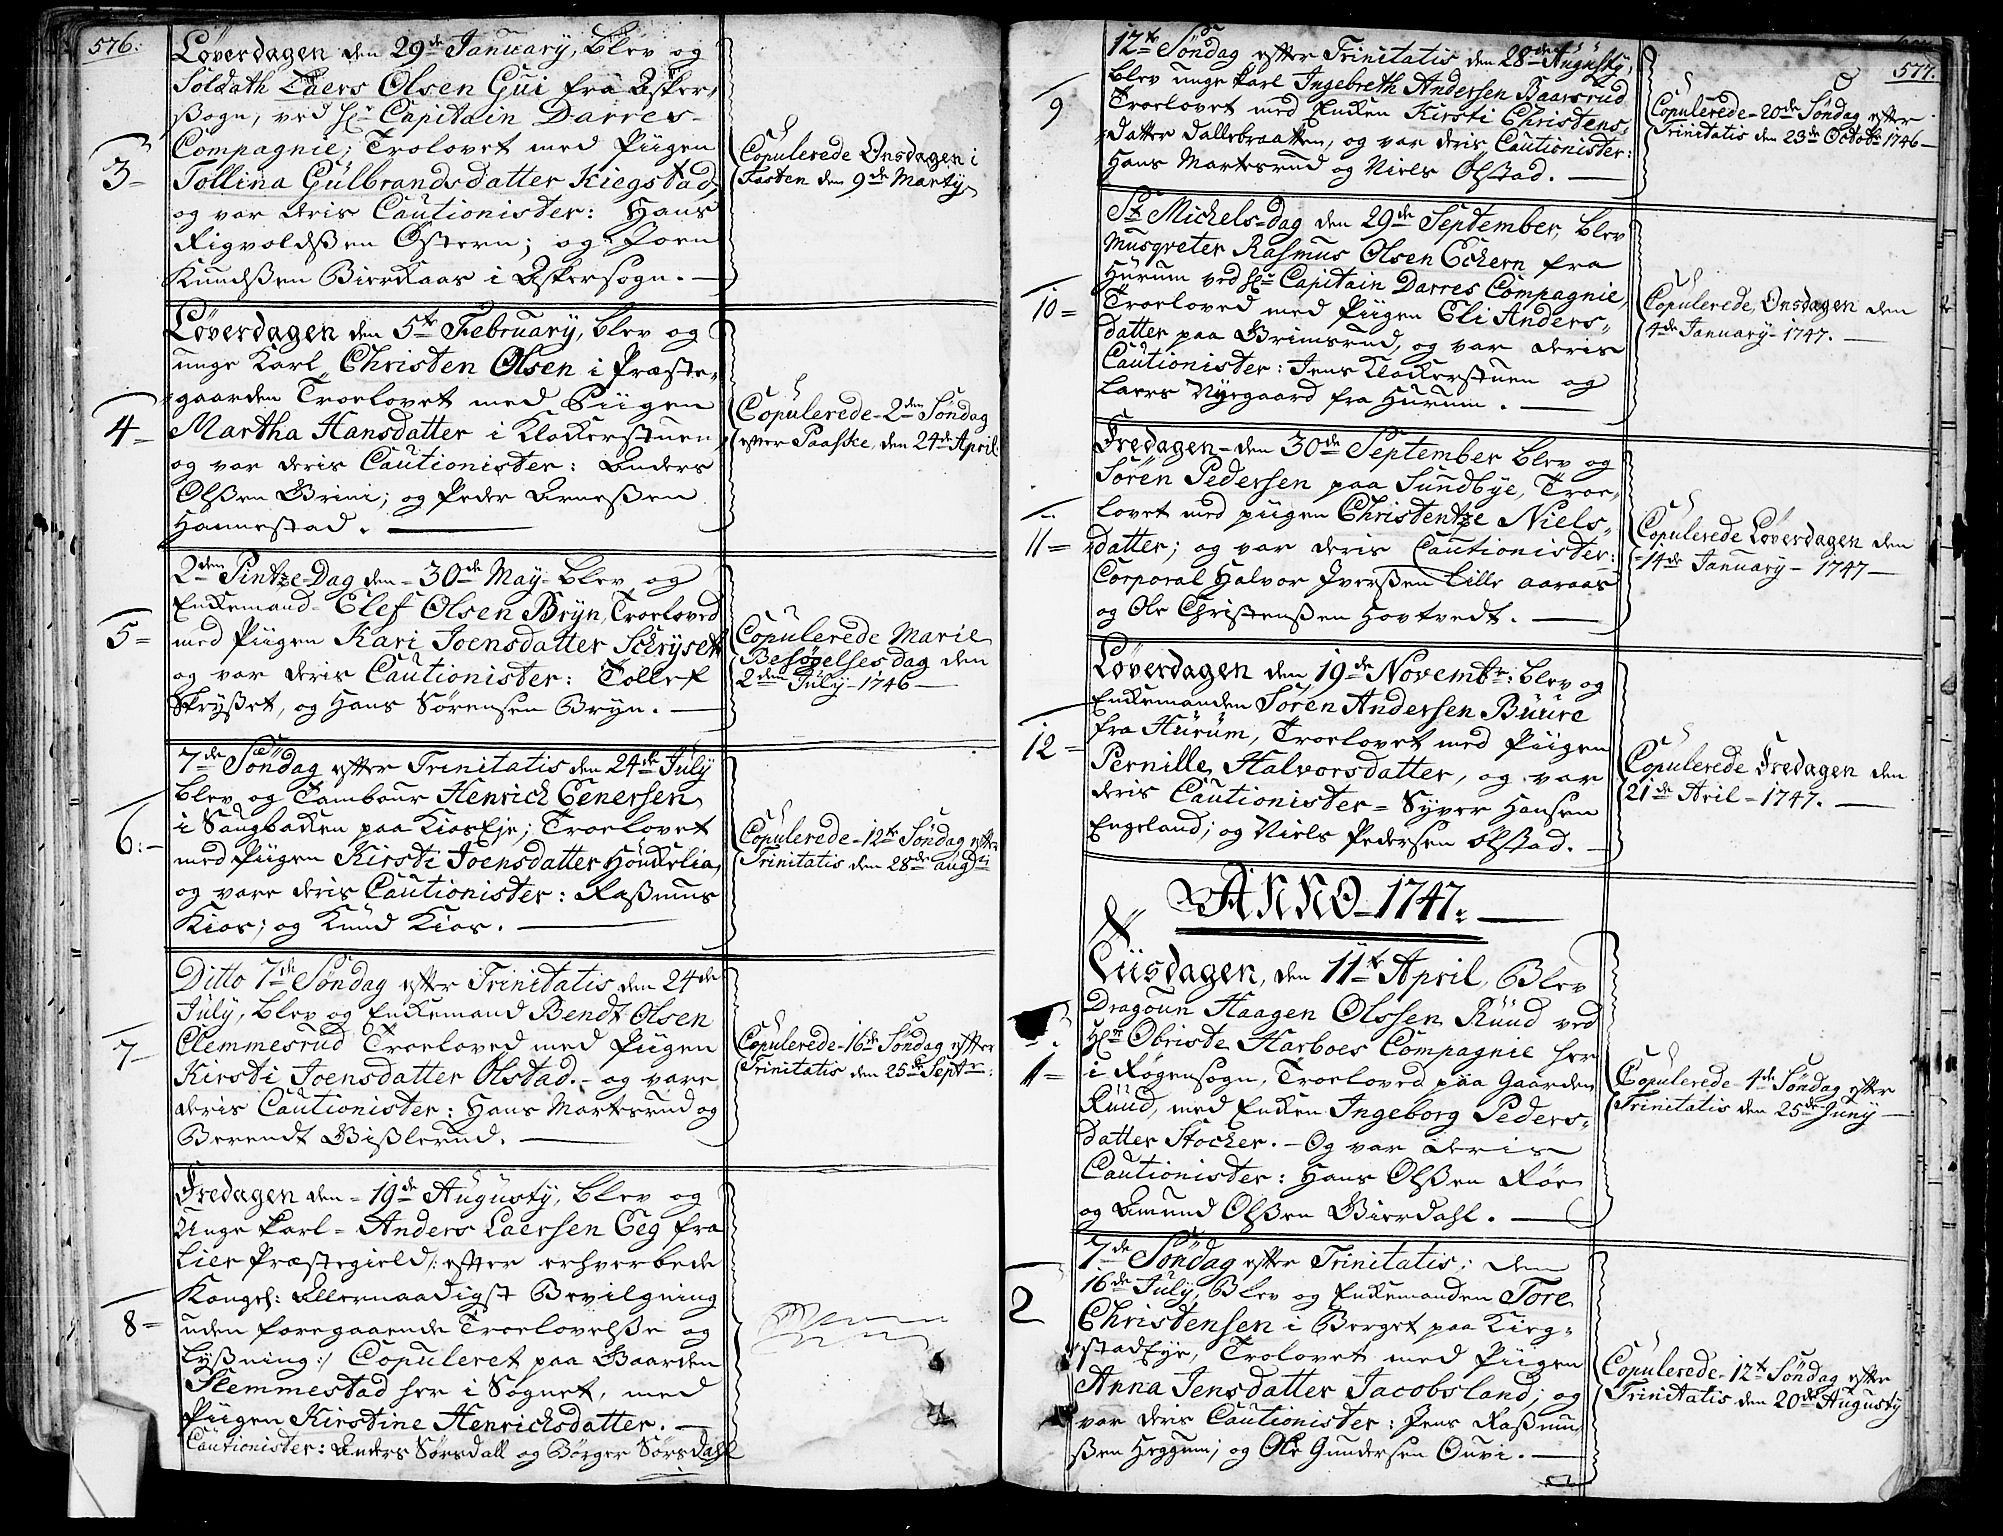 576:
Løverdagen den 29de January, blev og
Soldath Laers Olsen Gui fra Asker,,
ßogn, ved Hr Capitain Darres
Compagnie; Trolovet med Piigen
3 =
Tollina Gülbrandsdatter Kiegstad,
og var deris Cautionister: Hans
Rigvoldsßen Ostern; og Joen
Knudsßen Bierkaas i Askersogn. —
Copulerede Onsdagen i
Fasten den 9de Marty
Løverdagen den 5te February, blev og
unge Karl, Christen Olsen i Præste,,
gaarden Troelovet med Piigen
4 =
Martha Hansdatter i Klokerstuen,
og var deris Cautionister: Anders
Olßen Brini; og Peder Arneßen
Hannestad. —
Copulerede - 2den Søndag
efter Paaske, den 24de April
2den Pintze-Dag den - 30de May - blev og
Enkemand - Elef Olsen Bryn, Troeloved
5 =
med Piigen Kari Joensdatter Schrysett
og var deris Cautionister: Tollef
Skryßet, og Hans Sørensen Bryn. —
Copulerede Marie
Besøgelses dag den
2den July - 1746 —
7de Søndag efter Trinitatis den 24de July
blev og Tambour Henrich Eenersen
i Saugbakken paa Kios Eje; Troelovet
6: -
med Piigen Kirsti Joensdatter Hønkelia,
og vare deris Cautionister: Raßmus
Kios; og Knud Kios. —
Copulerede - 12te Søndag efter
Trinitatis den 28de augsti
Ditto 7de Søndag efter Trinitatis den 24de
July, blev og Enkemand Bendt Olsen
7 -
Clemmesrud Troeloved med Piigen
Kirsti Joensdatter Olstad. - og vare
deris Cautionister: Hans Martesrud og
Berendt Bißlerud. —
Copulerede - 16de Søndag efter
Trinitatis den 25de Septr:
Fredagen den - 19de Augusty, blev og
Unge Karl - Anders Laersen Eeg fra
Lier Præstegield /: efter erhverbede
Kongel: Allernaadigst Bevilgning
8 =
uden foregaaende Troelovelße og
Lyßning :/ Copuleret paa Gaarden
Slemmestad her i Sognet, med
Piigen Kirstine Henrichsdatter. —
Cautionister: Anders Sørsdall og Børger Sørsdahl
577.
12te Søndag efter Trinitatis den 28de Augusty,
blev unge Karl Ingebreth Andersen Baarsrud
9
Troelovet med Enken Kirsti Christens,,
datter Dallebraatten, og var deris Cautionister:
Hans Martesrud og Niels Olstad. —
Copulerede - 20de Søndag efter
Trinitatis den 23de Octobr 1746 —
St Michels-dag den 29de September, blev
Musqveter Rasmus Olsen Eckern fra
Hürum ved Hr Capitain Darres Compagnie,
10 =
Troeloved med Piigen Eli Anders,,
datter paa Grimsrud, og var deris
Cautionister: Jens Klokerstuen og
Laers Nygaard fra Hurum. —
Copulerede, Onsdagen den
4de January - 1747. —
Fredagen - den 30de September blev og
Søren Pedersen paa Sundbye, Troe,,
lovet med piigen Christentze Niels,,
11 =
datter; og var deris Cautionister:
Corporal Halvor Iverßen Lille Aaraas
og Ole Christenßen Hovtvedt. —
Copulerede Løverdagen den
- 14de January - 1747 —
Løverdagen den 19de Novembr: blev og
Enkemanden Søren Andersen Büüre
fra Hürüm, Troelovet med Piigen
12 =
Pernille, Halvorsdatter, og var
deris Cautionister - Syver Hansen
Engeland; og Niels Pedersen Olstad. -
Copulerede Fredagen den
21de Aril - 1747. —
ANNO - 1747. —
Tiisdagen, den 11te April, Blev
Dragoun Haagen Olssen Rüüd ved
Hr Obriste Harboes Compagnie her
1 =
i Røgensogn, Troeloved paa Gaarden
Rüüd, med Enken Ingeborg Peders,,
datter Stocker. - Og var deris
Cautionister: Hans Olßen Røe
og Amund Olßen Bierdahl. —
Copulerede - 4de Søndag efter
Trinitatis den 25de Juny —
7de Søndag efter Trinitatis; den
16de July, Blev og Enkemanden Tore
2
Christensen i Berget paa Kieg,,
stad Eje, Trolovet med Piigen
Anna Jensdatter Jacobsland; og
var deris Cautionister: Jens Raßmus
ßen Heggum; og Ole Gundersen Ouvi. —
Copulerede - 12te Søndag efter
Trinitatis den 20de Augusty